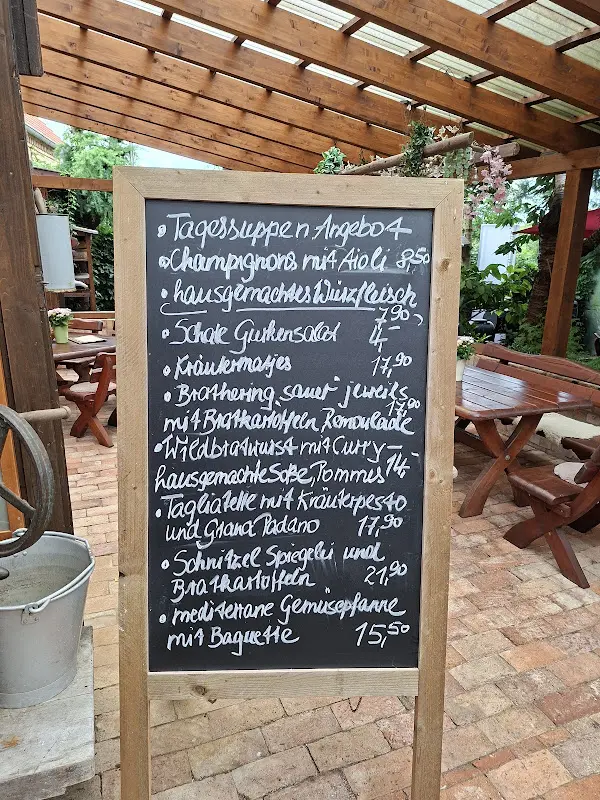 • Tagessuppen Angebot
• Champignons mit Aioli 8,50
• hausgemachtes Würzfleisch
7,90
• Schale Gurkensalat 4,-
• Kräutermatjes 17,90
• Brathering "sauer" jeweils
17,90
mit Bratkartoffeln, Remoulade
• Wildbratwurst mit Curry
hausgemachte Soße, Pommes 14,-
• Tagliatelle mit Kräuterpesto
und Grana Padano 17,90
• Schnitzel Spiegelei und
Bratkartoffeln 21,90
• mediterrane Gemüsepfanne
mit Baguette 15,50